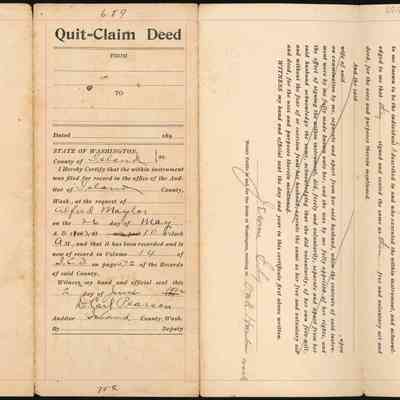 689
Quit-Claim Deed
FROM
TO
Dated 189
STATE OF WASHINGTON,
County of Island ss.
I hereby Certify that the within instrument
was filed for record in the office of the Aud-
itor of Island County,
Wash., at the request of
Alfred Maylor
on the 26 day of May
A. D. at 10 o'clock
A M., and that it has been recorded and is
now of record in Volume 14 of
on page of the Records
of said County.
Witness my hand and official seal this
2 day of June
Pearson
Auditor Island County, Wash.
By Deputy
to me known to be the individual described in and who executed the within instrument, and acknowl-
edged to me that they signed and sealed the same as their free and voluntary act and
deed, for the uses and purposes therein mentioned.
And the said
wife of said upon
an examination by me, separate and apart from her said husband, when the contents of said instru-
ment were by me fully made known unto her, and she was by me fully apprised of her rights, and
the effect of signing the within instrument, did, freely and voluntarily, separate and apart from her
said husband acknowledge the same, acknowledging that she did voluntarily, of her own free will,
and without the fear of or coercion from her husband, execute the same as her free and voluntary act
and deed, for the uses and purposes therein mentioned.
WITNESS my hand and official seal the day and year in this certificate first above written.
Jerome Ely
Notary Public in and for the State of Washington, residing at Oak Harbor